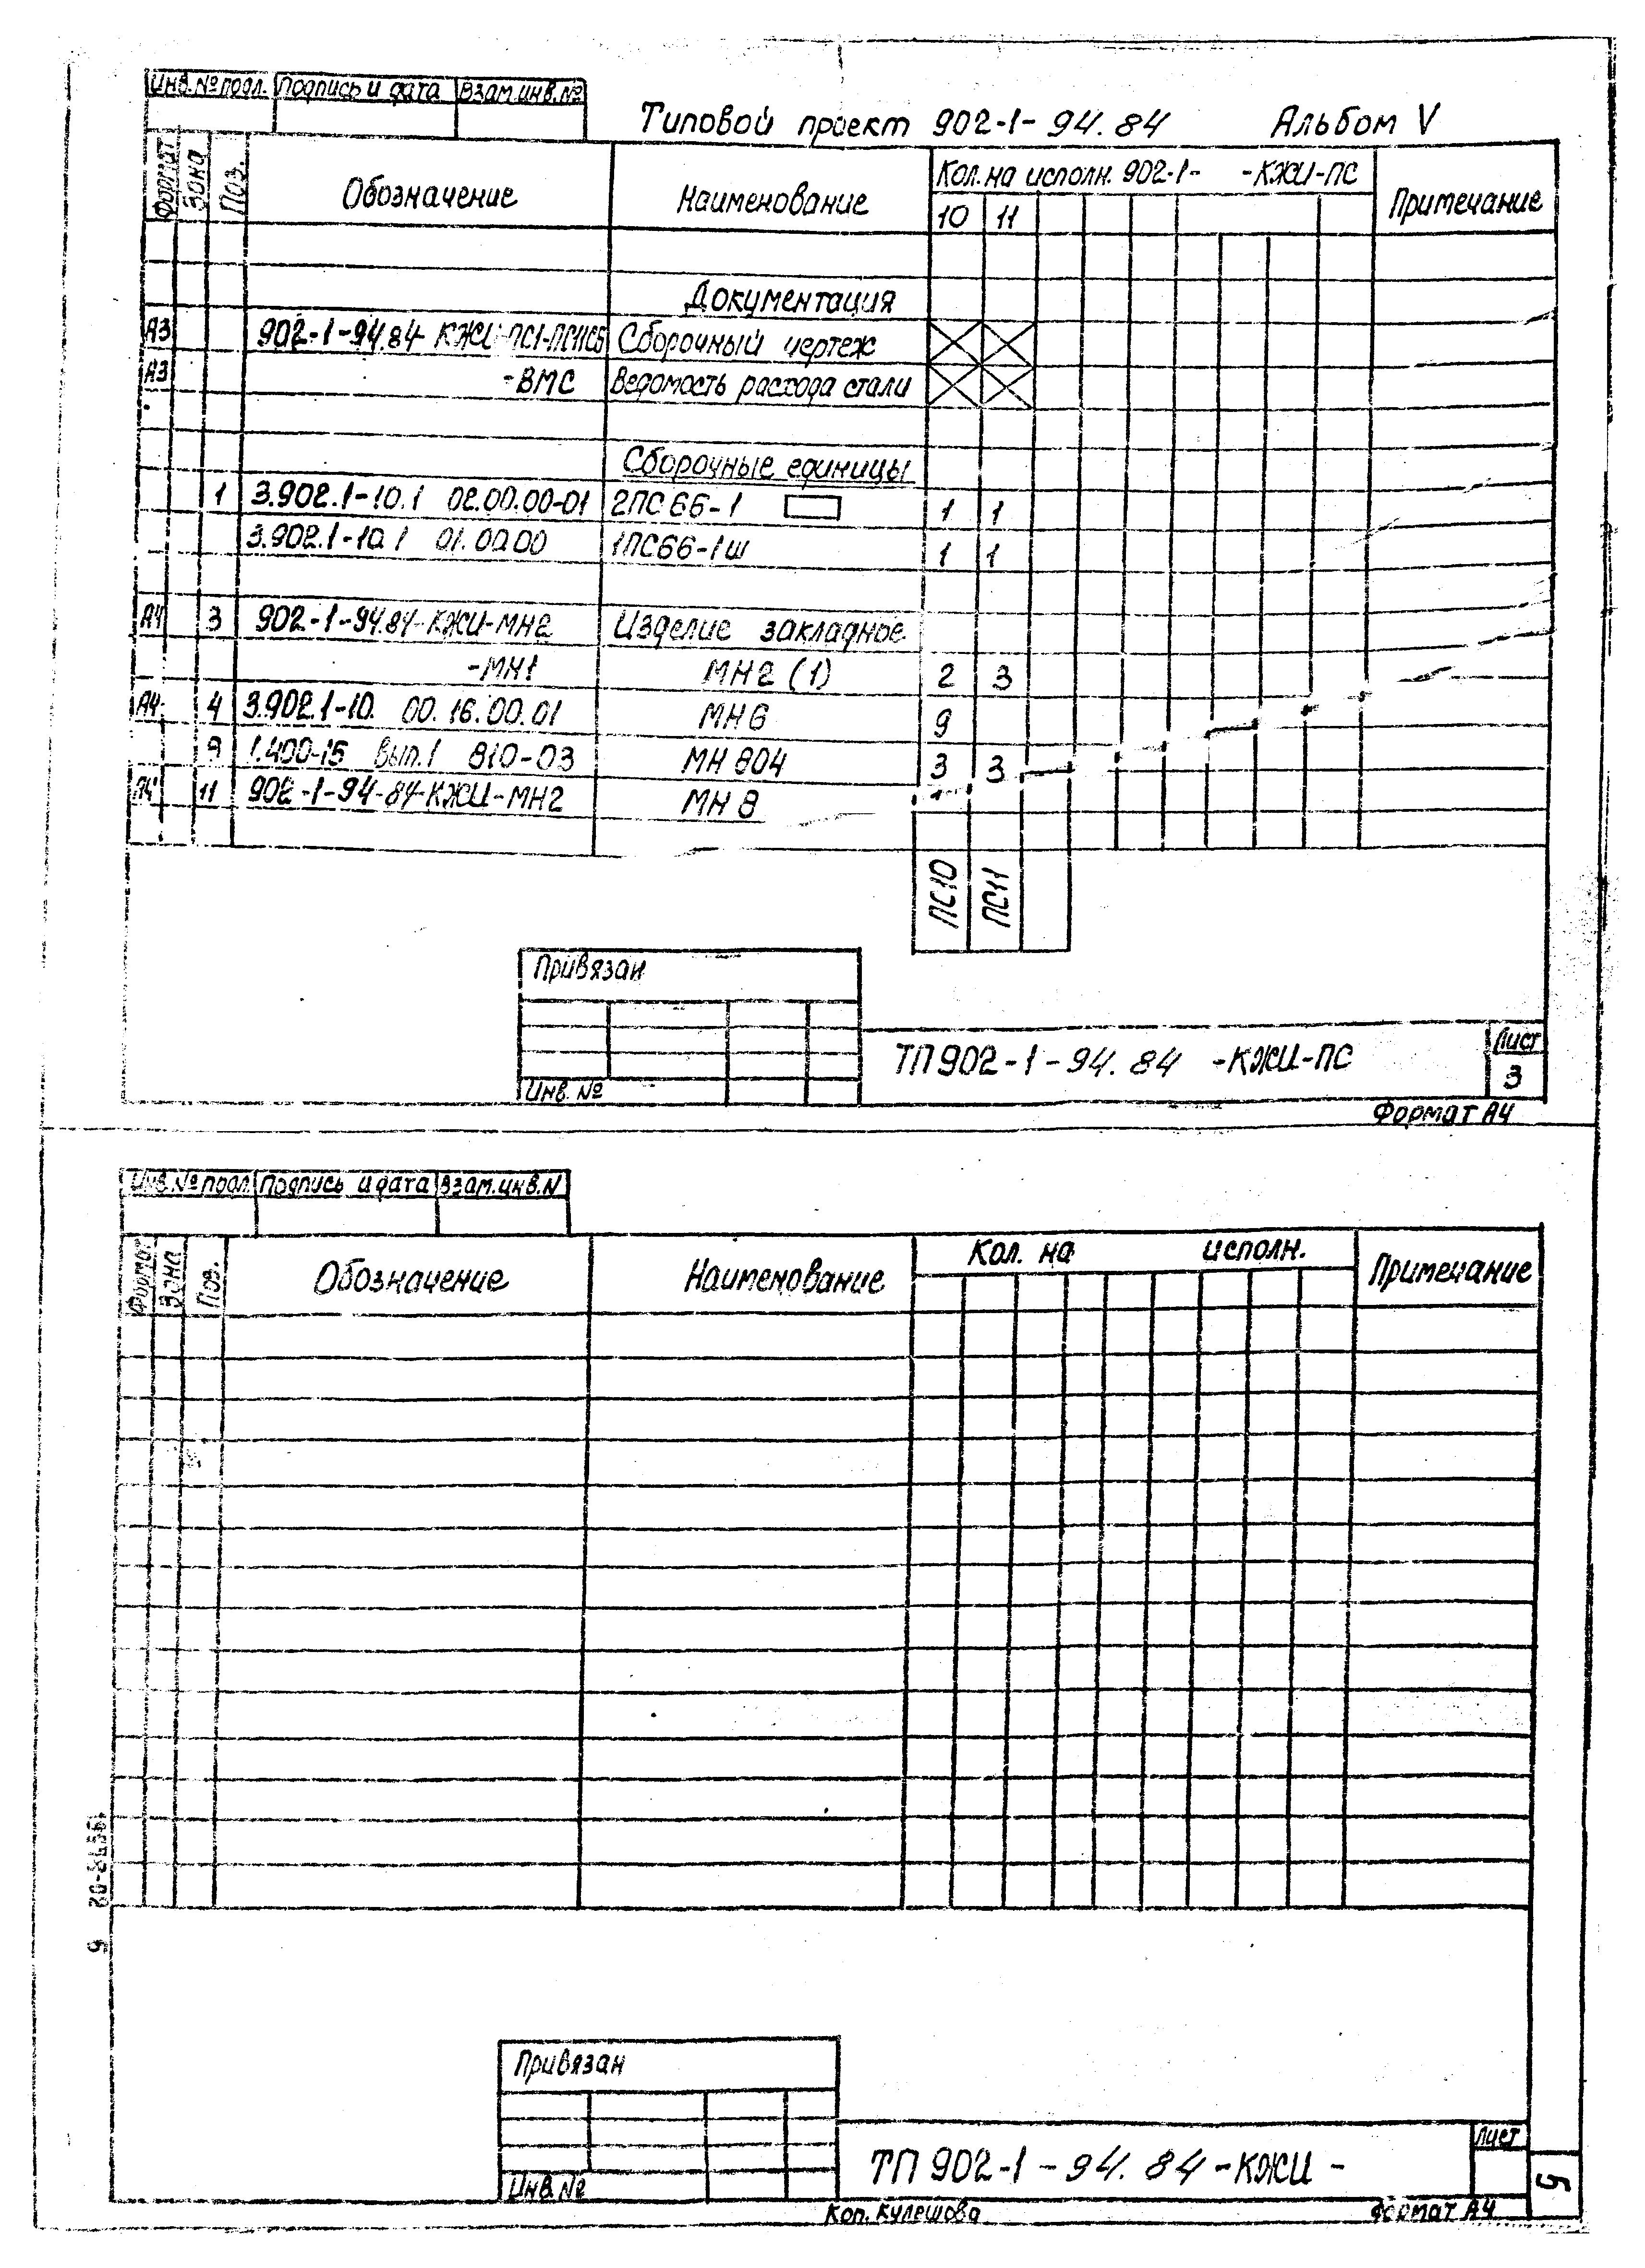 Инв.№ подл. Подпись и дата Взам.инв.№
Типовой проект 902-1-94.84 Альбом V
Формат Зона Поз. Обозначение Наименование Кол. на исполн. 902-1- -КЖИ-ПС Примечание
10 11
Документация
А3 902-1-94.84-КЖИ-ПС1-ПС11СБ Сборочный чертеж
А3 -ВМС Ведомость расхода стали
Сборочные единицы
1 3.902.1-10.1 02.00.00-01 2ПС66-1 1 1
3.902.1-10.1 01.00.00 1ПС66-1ш 1 1
А4 3 902-1-94.84-КЖИ-МН2 Изделие закладное
-МН1 МН2 (1) 2 3
А4 4 3.902.1-10. 00.16.00.01 МН6 9
1.400-15 Вып.1 810-03 МН 804 3 3
А4 11 902-1-94-84-КЖИ-МН2 МН8
ПС10 ПС11
Привязан
ТП902-1-94.84 -КЖИ-ПС Лист
3
Инв. №
Формат А4
Инв.№ подл. Подпись и дата Взам.инв.N
Формат Зона Поз. Обозначение Наименование Кол. на исполн. Примечание
Привязан
ТП 902-1-94.84-КЖИ - Лист
Инв.№
Коп. Кулешова Формат А4
5